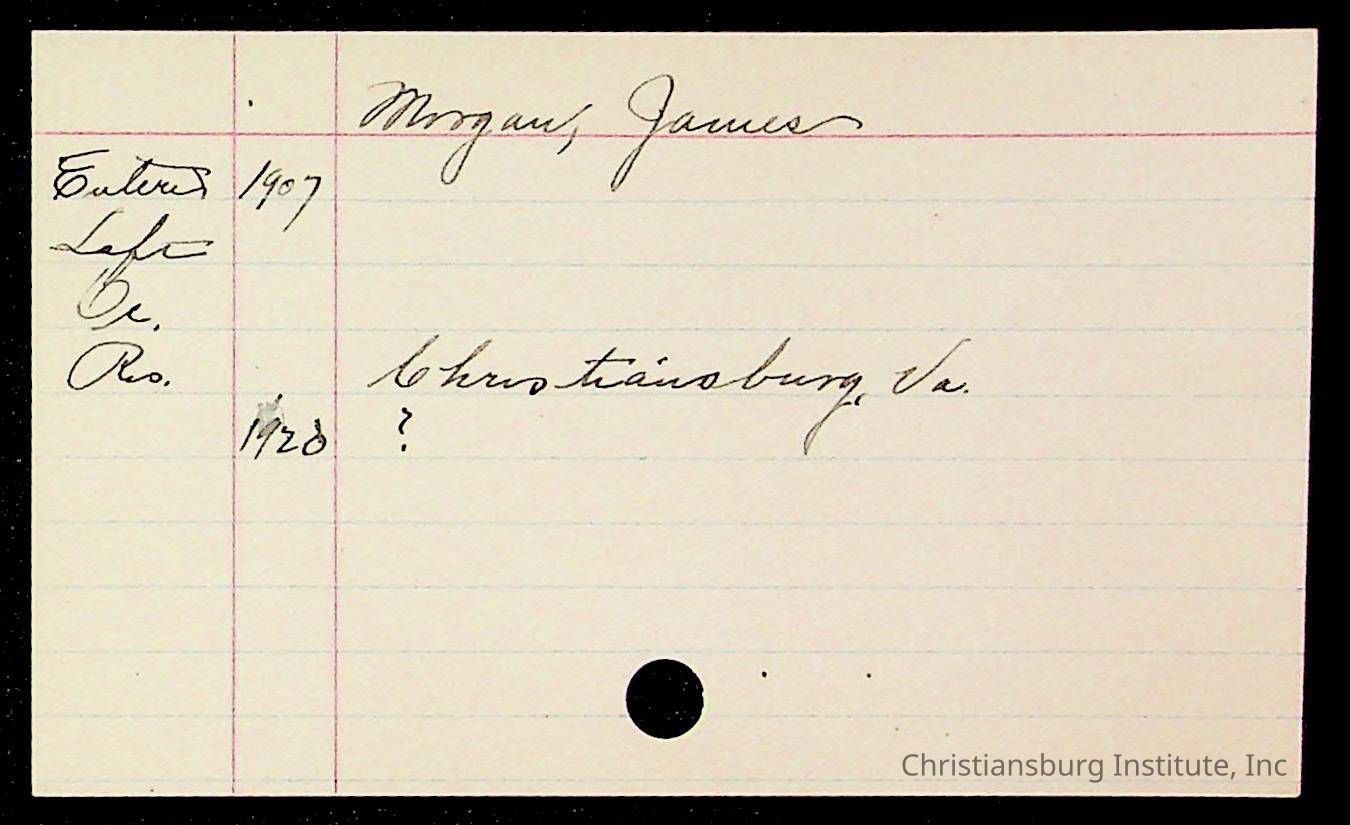 Morgan, James
Entered 1907
Left
Oc.
Res. Christiansburg, Va.
1920 ?
Christiansburg Institute, Inc